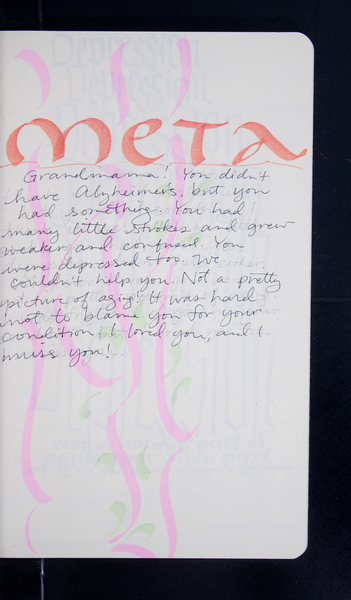 META
Grandmama! You didn't
have Alzheimer's, but you
had something. You had
many little strokes and grew
weaker and confused. You
were depressed too. We
couldn't help you. Not a pretty
picture of aging! It was hard
not to blame you for your
condition. I loved you, and I
miss you!